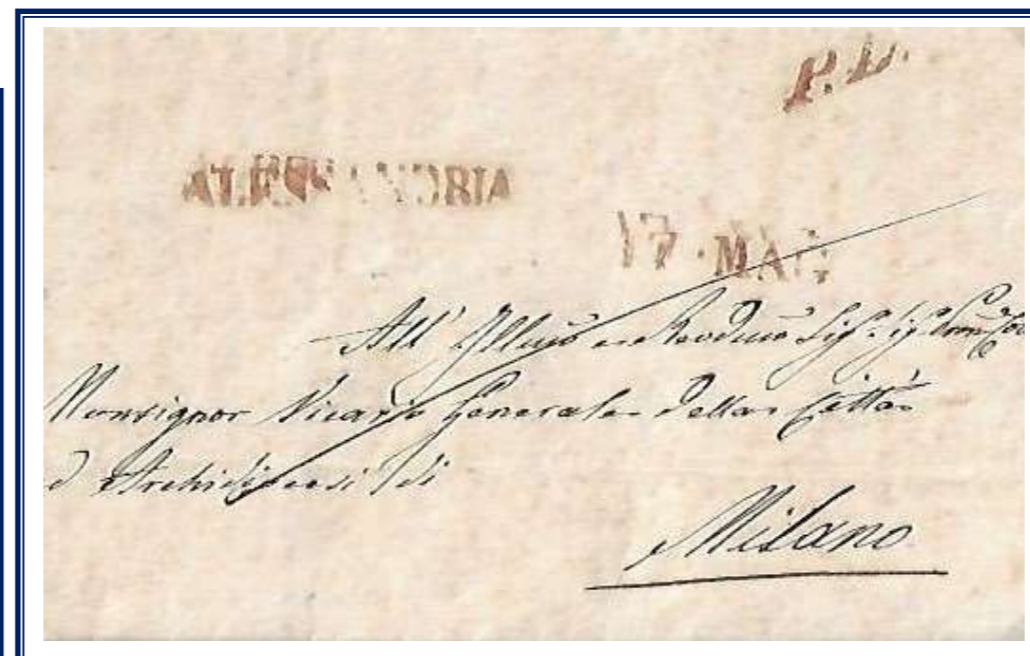 P.L.
ALESSANDRIA
17 · MAG
All' Illmo e Revdmo Sigr.
Monsignor Vicario Generale della Città
d Archidiocesi di
Milano